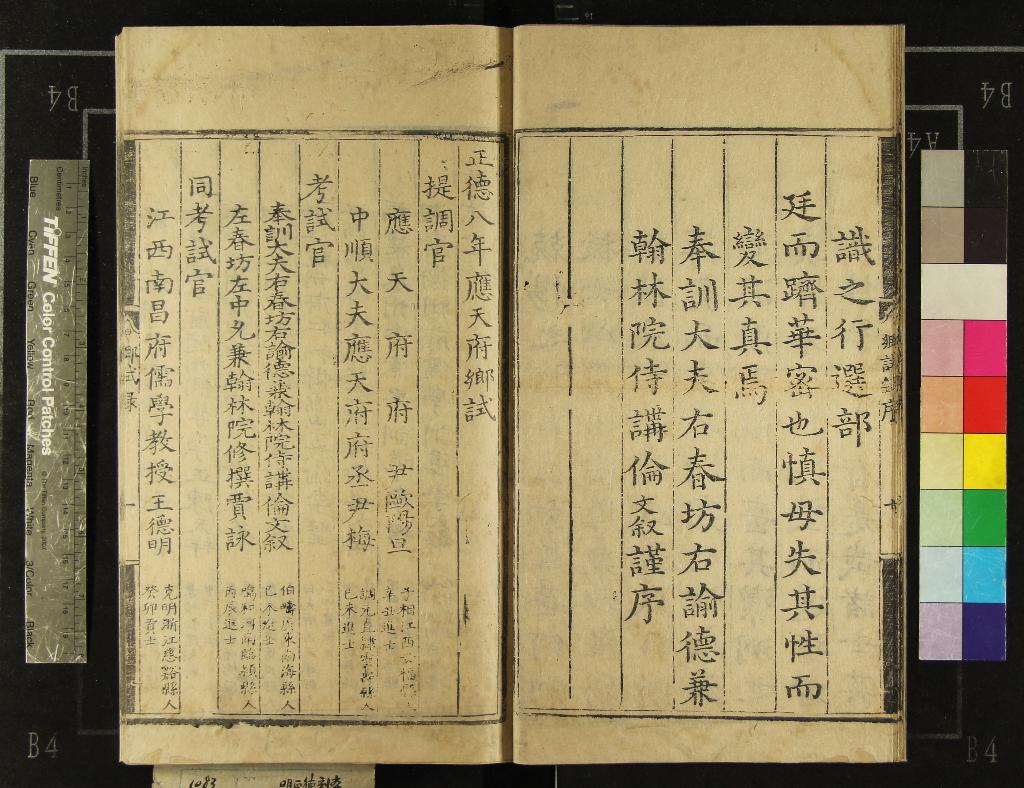 識之行選部
廷而躋華密也慎毋失其性而
變其真焉
奉訓大夫右春坊右諭德兼
翰林院侍講倫文叙謹序
鄉試錄序
正德八年應天府鄉試
提調官
應天府府尹歐陽旦
子相江西安福縣人
辛丑進士
中順大夫應天府府丞尹梅
調元直隸
縣人
己未進士
考試官
奉訓大夫右春坊右諭德兼翰林院侍講倫文叙
伯疇廣東南海縣人
己未進士
左春坊左中允兼翰林院修撰賈詠
鳴和河南臨潁縣人
丙辰進士
同考試官
江西南昌府儒學教授王德明
克明浙江慈谿縣人
癸卯貢士
鄉試录
一
B4
B4
A4
B4
B4
TIFFEN Color Control Patches
Centimetres
Blue
Cyan
Green
Yellow
Red
Magenta
White
3/Color
Black
1083